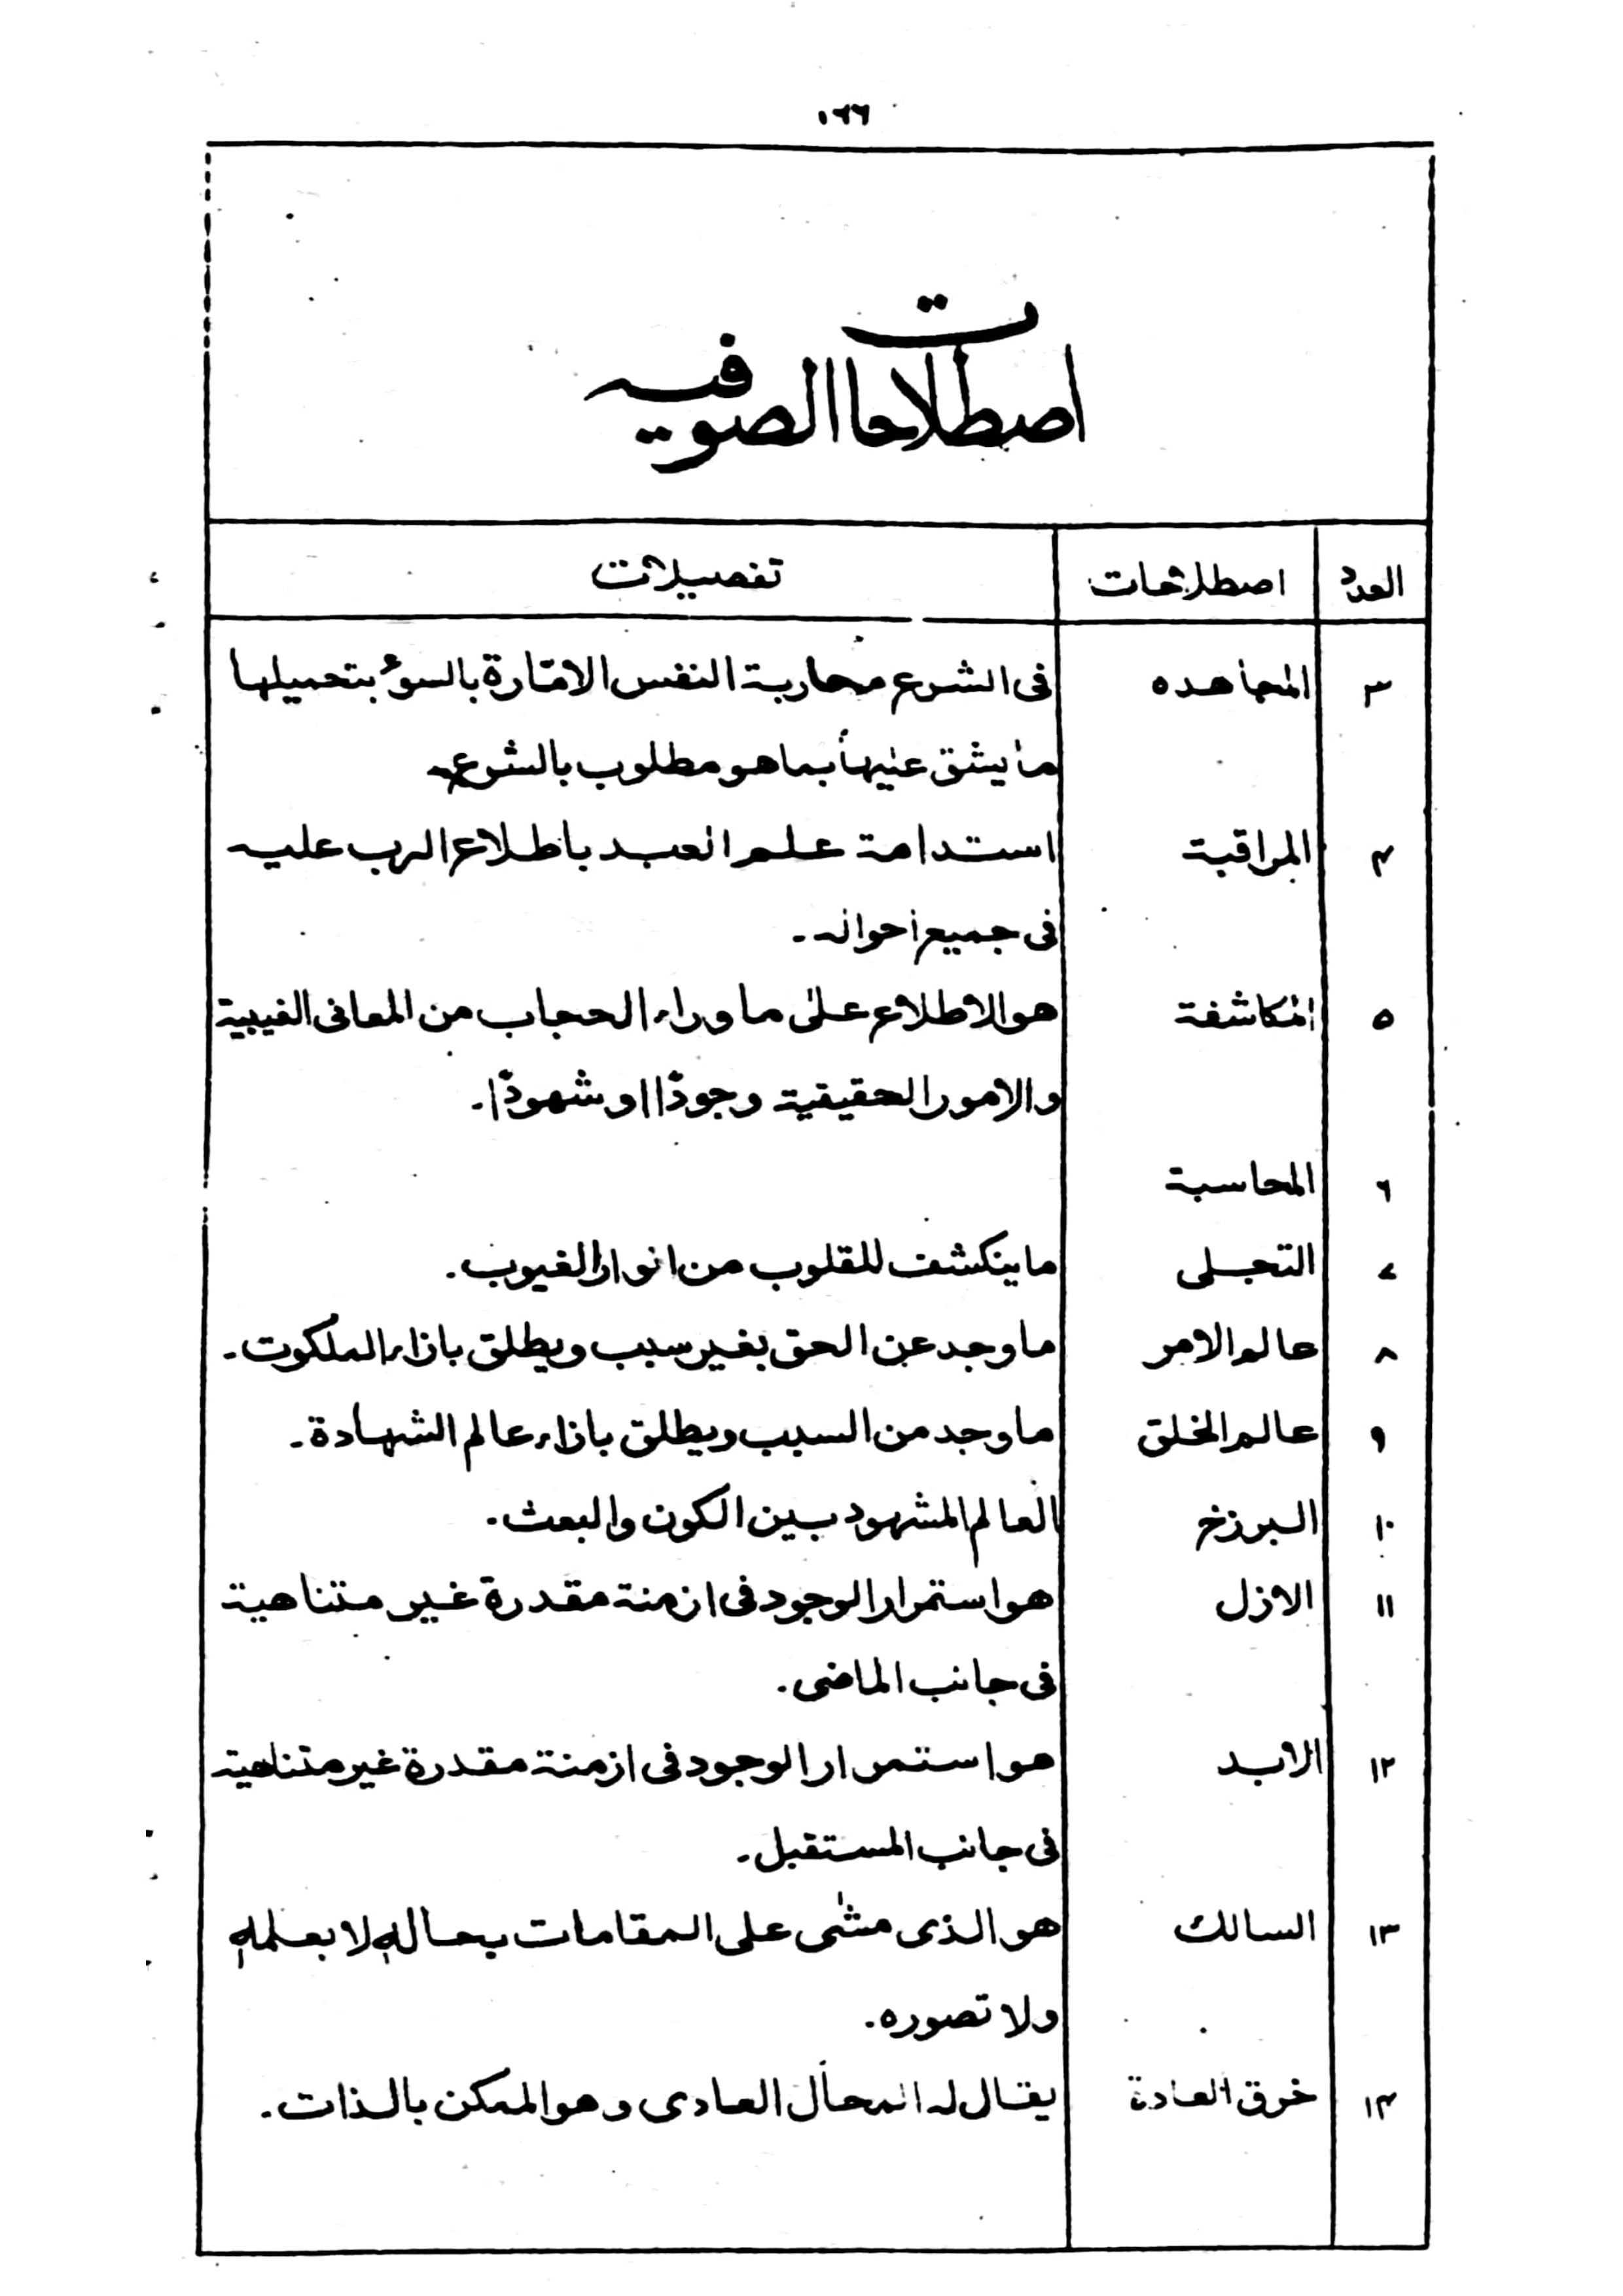 ١٢٦
اصطلاحات الصوفيه
العدد اصطلاحات تفصيلات
٣ المجاهده فى الشرع محاربة النفس الامّارة بالسوءُ بتحميلها
ما يشق عليها بما هو مطلوب بالشرع۔
۴ المراقبة استدامة علم العبد باطلاع الرب عليه
فى جميع احواله۔
٥ المكاشفة هو الاطلاع على ما وراء الحجاب من المعانى الغيبية
والامور الحقيقية وجودًا او شهودًا۔
٦ المحاسبة
٧ التجلى ما ينكشف للقلوب من انوار الغيوب۔
٨ عالم الامر ما وجد عن الحق بغير سبب ويطلق بازاء الملكوت۔
٩ عالم الخلق ما وجد من السبب ويطلق بازاء عالم الشهادة۔
١٠ البرزخ العالم المشهود بين الكون والبعث۔
١١ الازل هو استمرار الوجود فى ازمنة مقدرة غير متناهية
فى جانب الماضى۔
١٢ الابد هو استمرار الوجود فى ازمنة مقدرة غير متناهية
فى جانب المستقبل۔
١٣ السالك هو الذى مشٰى على المقامات بحالهٖ لا بعلمهٖ
ولا تصوره۔
١۴ خرق العادة يقال له المحال العادى وهو الممكن بالذات۔